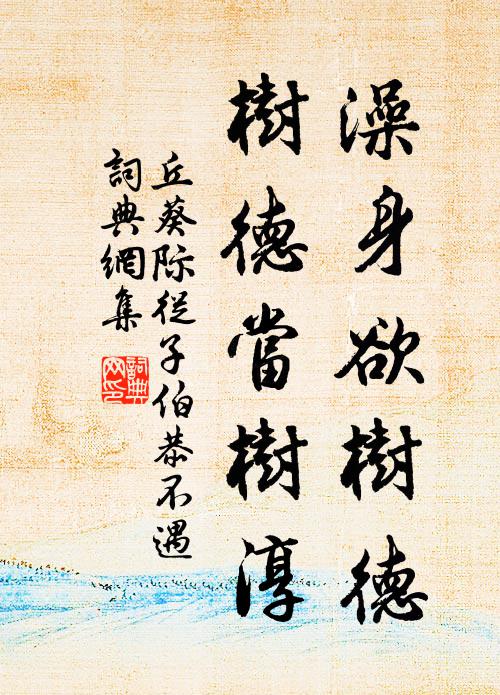 澡身欲樹德
樹德當樹淳
丘葵際從子伯恭不遇
詞典網集
詞典网印